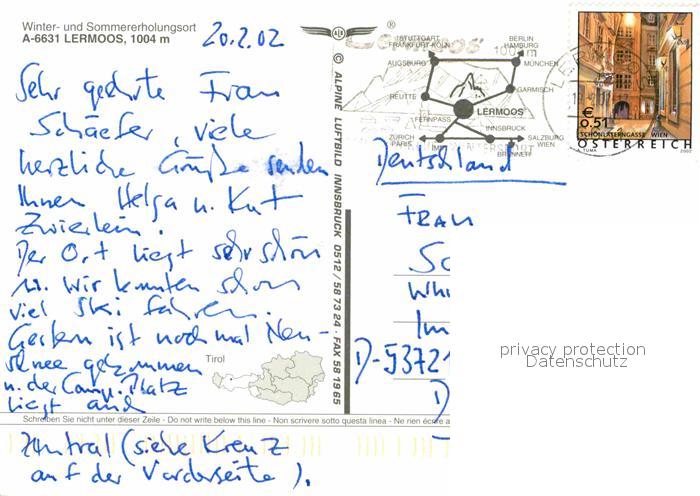 Winter- und Sommererholungsort
A-6631 LERMOOS, 1004 m
20.2.02
Sehr geehrte Frau
Schäefer, viele
herzliche Grüße senden
Ihnen Helga u. Kut
Zwierlein.
Der Ort liegt sehr schön
u. wir konnten schon
viel Ski fahren.
Gestern ist nochmal Neu-
schnee gekommen
u. der Camp. Platz
liegt auch
Tirol
Schreiben Sie nicht unter dieser Zeile - Do not write below this line - Non scrivere sotto questa linea - Ne rien écrire a
zentral (siehe Kreuz
auf der Vorderseite).
© ALPINE LUFTBILD INNSBRUCK 0512 / 58 73 24 · FAX 58 19 65
®
Lermoos
1004 m
STUTTGART
FRANKFURT-KÖLN
BERLIN
HAMBURG
AUGSBURG
MÜNCHEN
REUTTE
GARMISCH
LERMOOS
FERNPASS
INNSBRUCK
ZÜRICH
PARIS
IMST
SALZBURG
WIEN
BRENNER
€
0,51
SCHÖNLATERNGASSE WIEN
ÖSTERREICH
A. TUMA
2002
Deutschland
FRAU
Sc
Whi
Im
D-53721
D
privacy protection
Datenschutz